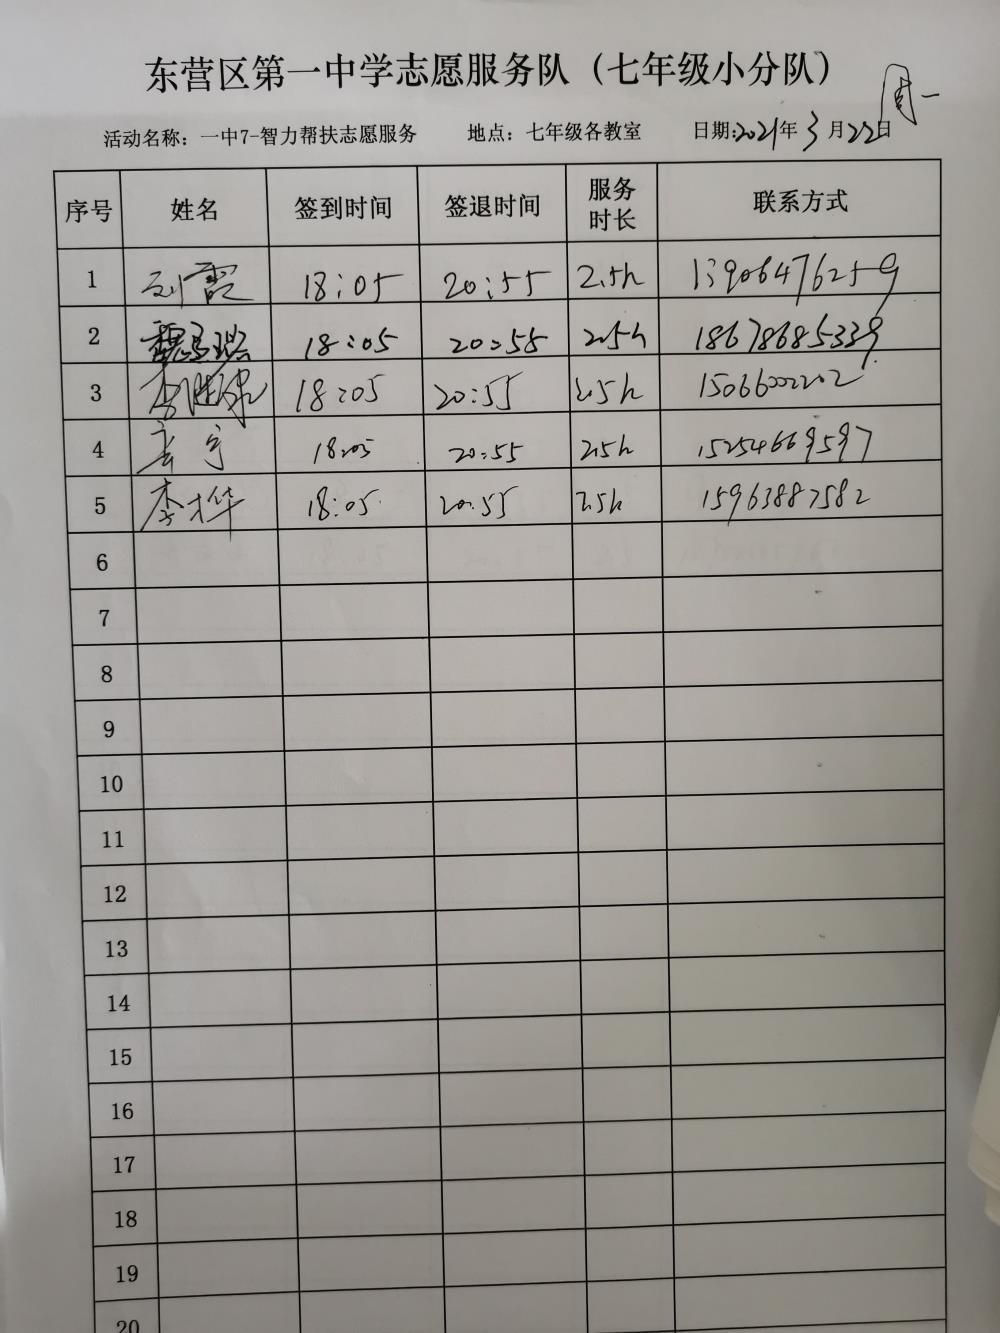 东营区第一中学志愿服务队（七年级小分队）
周一
活动名称：一中7-智力帮扶志愿服务 地点：七年级各教室 日期:2021年3月22日
序号 姓名 签到时间 签退时间 服务时长 联系方式
1 刘霞 18:05 20:55 2.5h 13906476259
2 18:05 20:55 2.5h 18678685339
3 18:05 20:55 2.5h 15066002202
4 18:05 20:55 2.5h 15254669597
5 李桦 18:05 20:55 2.5h 15963887582
6
7
8
9
10
11
12
13
14
15
16
17
18
19
20